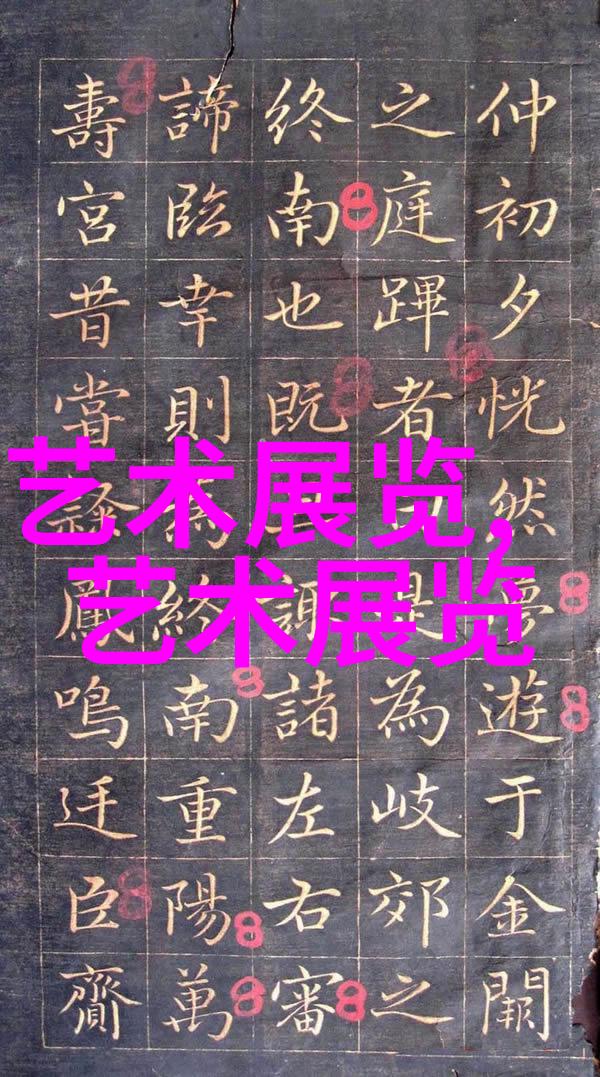 艺术展览,
艺术展览
仲初夕恍然夢遊于金闕
之庭蹕者是為岐郊之
終南也既諏諸左右審
諦臨幸則為終南重陽萬
壽宮昔嘗鳴迋臣齎